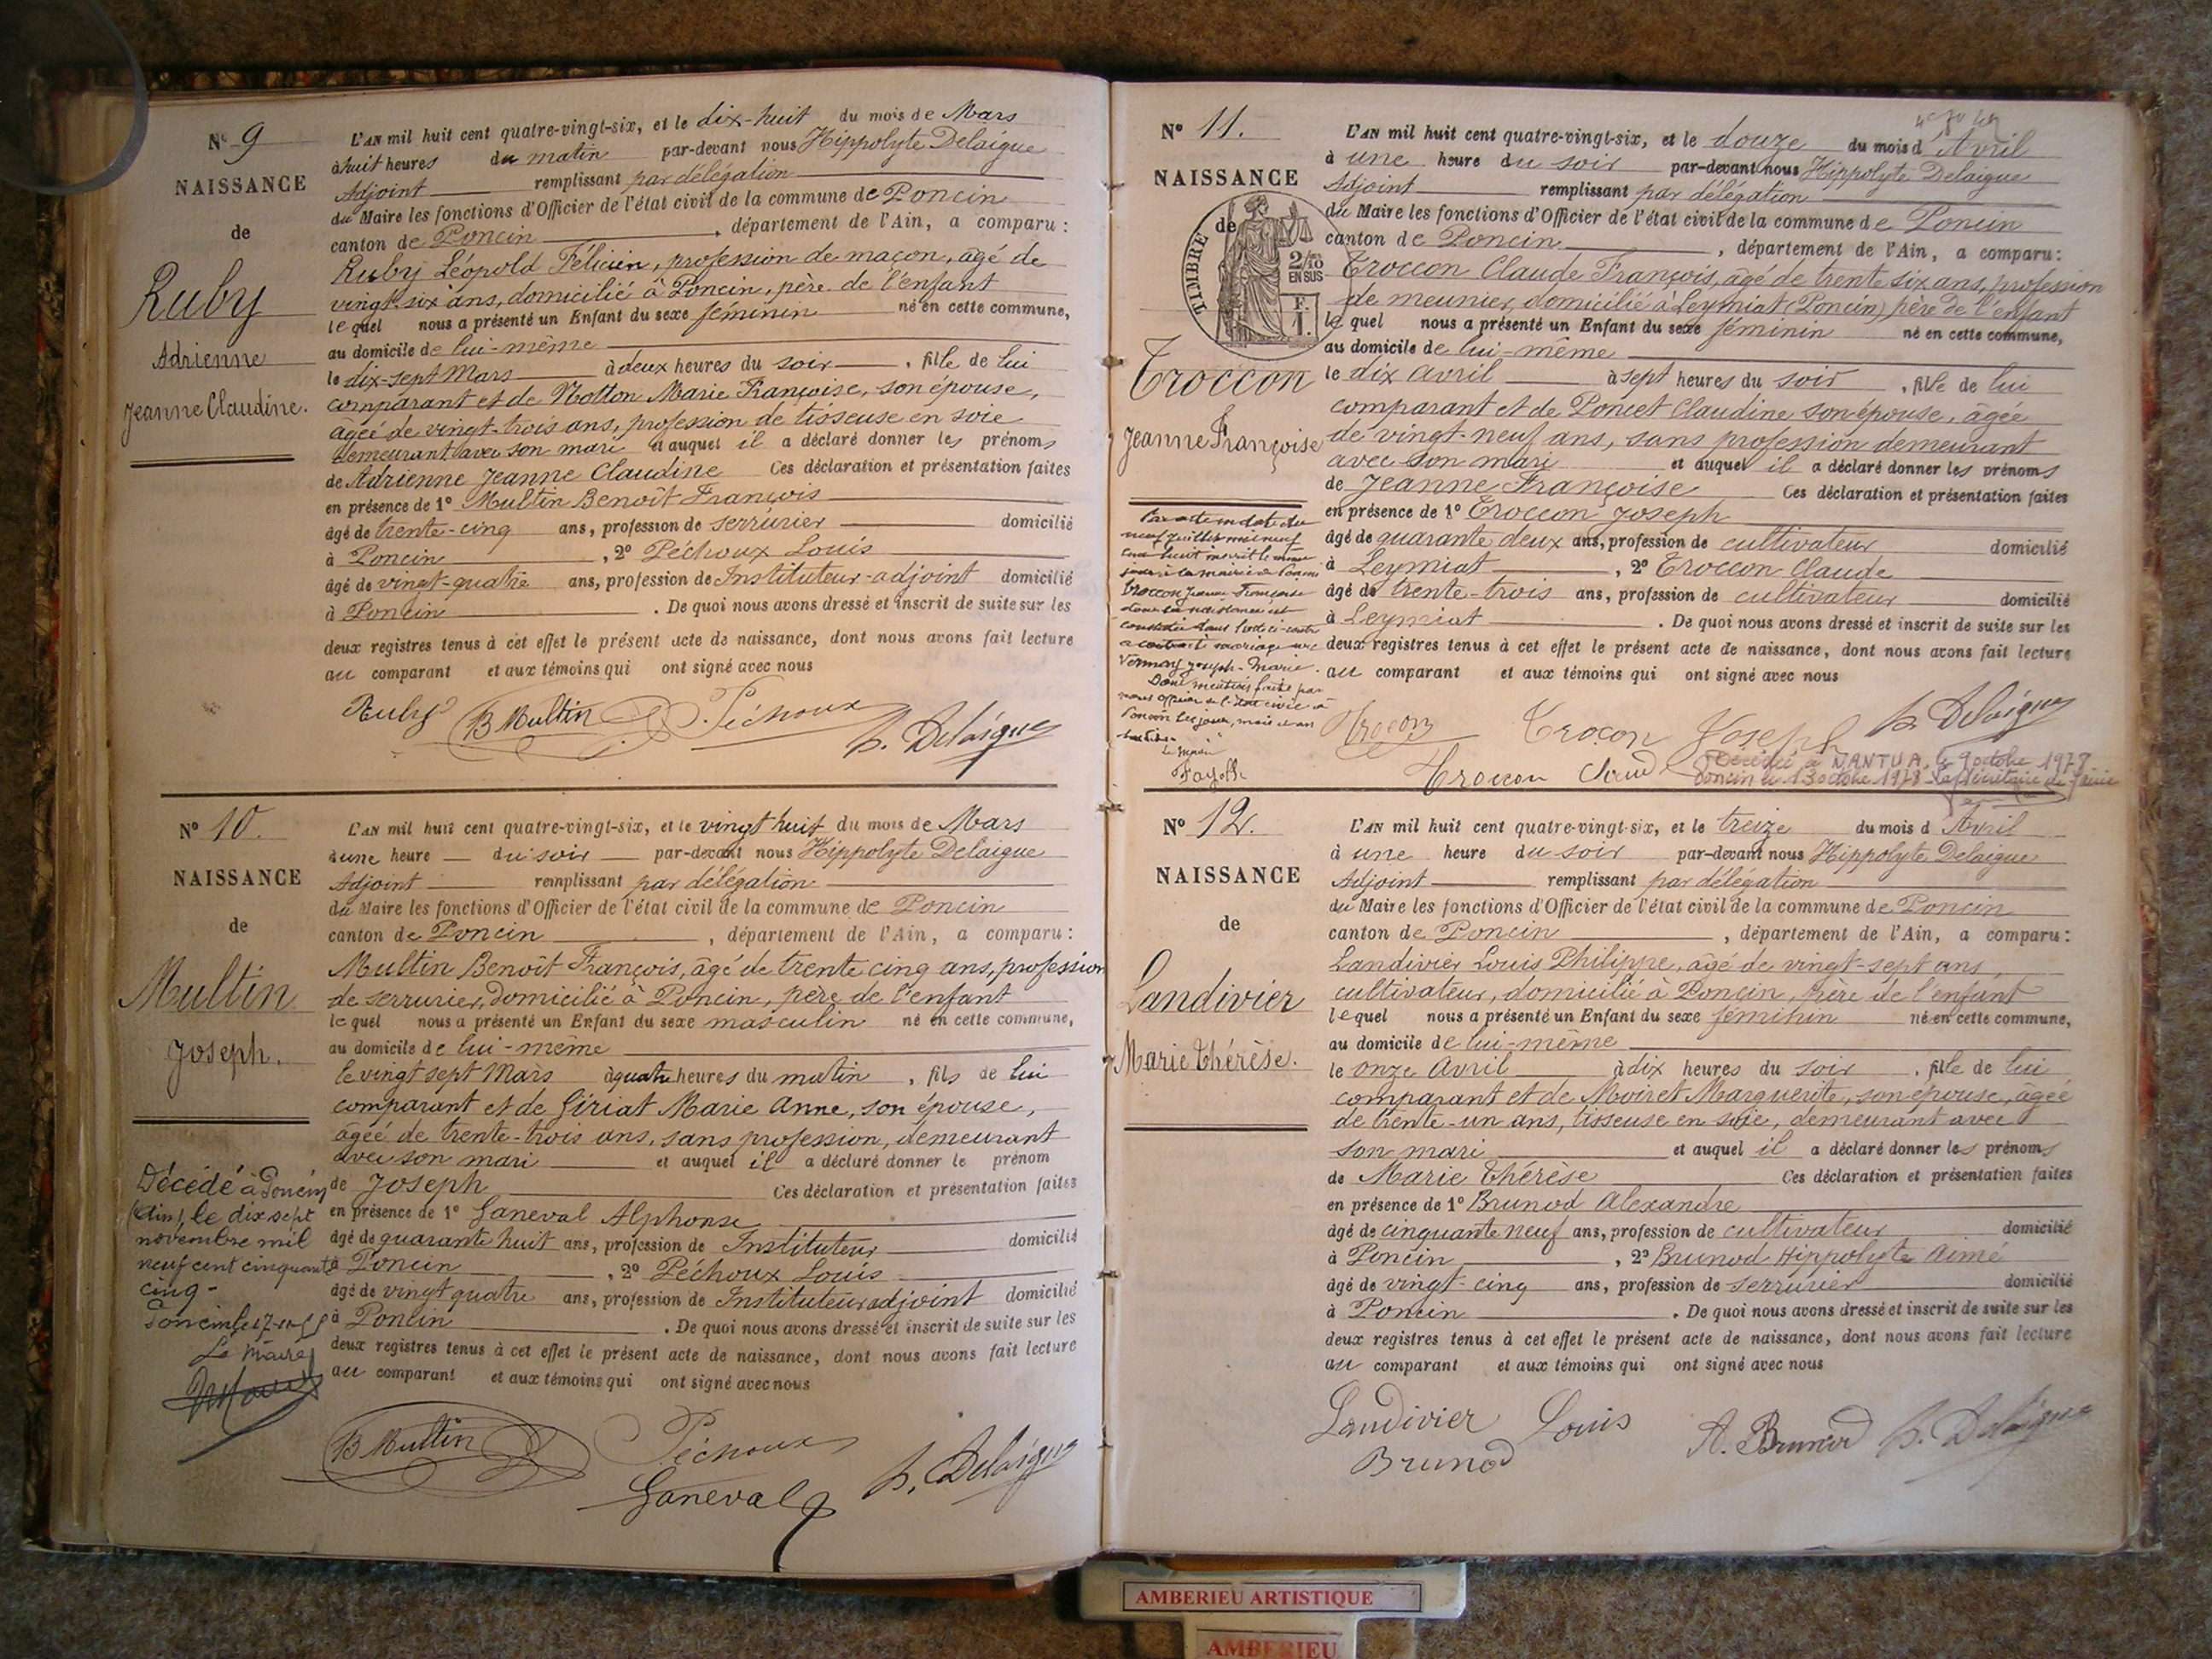 N° 9
NAISSANCE
de
Ruby
Adrienne
Jeanne Claudine.
L'AN mil huit cent quatre-vingt-six, et le dix-huit du mois de Mars
à huit heures du matin par-devant nous Hippolyte Delaigue
Adjoint remplissant par délégation
du Maire les fonctions d'Officier de l'état civil de la commune de Poncin
canton de Poncin, département de l'Ain, a comparu :
Ruby Léopold Félicien, profession de maçon, âgé de
vingt-six ans, domicilié à Poncin, père de l'enfant
lequel nous a présenté un Enfant du sexe féminin né en cette commune,
au domicile de lui-même
le dix-sept Mars à deux heures du soir, fille de lui
comparant et de Notton Marie Françoise, son épouse,
âgée de vingt-trois ans, profession de tisseuse en soie
demeurant avec son mari et auquel il a déclaré donner les prénoms
de Adrienne Jeanne Claudine Ces déclaration et présentation faites
en présence de 1° Multin Benoît François
âgé de trente-cinq ans, profession de serrurier domicilié
à Poncin, 2° Péchoux Louis
âgé de vingt-quatre ans, profession de Instituteur-adjoint domicilié
à Poncin. De quoi nous avons dressé et inscrit de suite sur les
deux registres tenus à cet effet le présent acte de naissance, dont nous avons fait lecture
au comparant et aux témoins qui ont signé avec nous
Ruby B Multin Péchoux h. Delaigue
N° 10.
NAISSANCE
de
Multin
Joseph.
L'AN mil huit cent quatre-vingt-six, et le vingt huit du mois de Mars
à une heure du soir par-devant nous Hippolyte Delaigue
Adjoint remplissant par délégation
du Maire les fonctions d'Officier de l'état civil de la commune de Poncin
canton de Poncin, département de l'Ain, a comparu :
Multin Benoît François, âgé de trente cinq ans, profession
de serrurier, domicilié à Poncin, père de l'enfant
lequel nous a présenté un Enfant du sexe masculin né en cette commune,
au domicile de lui-même
le vingt sept Mars à quatre heures du matin, fils de lui
comparant et de Giriat Marie Anne, son épouse,
âgée de trente-trois ans, sans profession, demeurant
avec son mari et auquel il a déclaré donner le prénom
de Joseph Ces déclaration et présentation faites
en présence de 1° Ganeval Alphonse
âgé de quarante huit ans, profession de Instituteur domicilié
à Poncin, 2° Péchoux Louis
âgé de vingt quatre ans, profession de Instituteur adjoint domicilié
à Poncin. De quoi nous avons dressé et inscrit de suite sur les
deux registres tenus à cet effet le présent acte de naissance, dont nous avons fait lecture
au comparant et aux témoins qui ont signé avec nous
Décédé à Poncin
(Ain), le dix sept
novembre mil
neuf cent cinquante
cinq -
Poncin le
Le Maire
B Multin Péchoux
Ganeval h. Delaigue
N° 11.
NAISSANCE
de
TIMBRE
2/10
EN SUS
F
1.
Troccon
Jeanne Françoise
L'AN mil huit cent quatre-vingt-six, et le douze du mois d'Avril
à une heure du soir par-devant nous Hippolyte Delaigue
Adjoint remplissant par délégation
du Maire les fonctions d'Officier de l'état civil de la commune de Poncin
canton de Poncin, département de l'Ain, a comparu :
Troccon Claude François, âgé de trente six ans, profession
de meunier, domicilié à Leymiat (Poncin) père de l'enfant
lequel nous a présenté un Enfant du sexe féminin né en cette commune,
au domicile de lui-même
le dix Avril à sept heures du soir, fille de lui
comparant et de Poncet Claudine son épouse, âgée
de vingt-neuf ans, sans profession demeurant
avec son mari et auquel il a déclaré donner les prénoms
de Jeanne Françoise Ces déclaration et présentation faites
en présence de 1° Troccon Joseph
âgé de quarante deux ans, profession de cultivateur domicilié
à Leymiat, 2° Troccon Claude
âgé de trente-trois ans, profession de cultivateur domicilié
à Leymiat. De quoi nous avons dressé et inscrit de suite sur les
deux registres tenus à cet effet le présent acte de naissance, dont nous avons fait lecture
au comparant et aux témoins qui ont signé avec nous
Par acte en date du
neuf juillet mil neuf
cent huit inscrit le même
jour à la mairie de Poncin
Troccon Jeanne Françoise
dont la naissance est
constatée dans l'acte ci-contre
a contracté mariage avec
Vernay Joseph-Marie.
Dont mention faite par
nous officier de l'état civil à
Poncin les jour, mois et an
Le Maire
Fayolle
Troccon Trocon Joseph h. Delaigue
Troccon Claude
Décédée à NANTUA, le 9 octobre 1978
Poncin le 13 octobre 1978 La secrétaire de Mairie
N° 12.
NAISSANCE
de
Landivier
Marie Thérèse.
L'AN mil huit cent quatre-vingt-six, et le treize du mois d'Avril
à une heure du soir par-devant nous Hippolyte Delaigue
Adjoint remplissant par délégation
du Maire les fonctions d'Officier de l'état civil de la commune de Poncin
canton de Poncin, département de l'Ain, a comparu :
Landivier Louis Philippe, âgé de vingt-sept ans,
cultivateur, domicilié à Poncin, père de l'enfant
lequel nous a présenté un Enfant du sexe féminin né en cette commune,
au domicile de lui-même
le onze Avril à dix heures du soir, fille de lui
comparant et de Moiret Marguerite, son épouse, âgée
de trente-un ans, tisseuse en soie, demeurant avec
son mari et auquel il a déclaré donner les prénoms
de Marie Thérèse Ces déclaration et présentation faites
en présence de 1° Brunod Alexandre
âgé de cinquante neuf ans, profession de cultivateur domicilié
à Poncin, 2° Brunod Hippolyte Aimé
âgé de vingt-cinq ans, profession de serrurier domicilié
à Poncin. De quoi nous avons dressé et inscrit de suite sur les
deux registres tenus à cet effet le présent acte de naissance, dont nous avons fait lecture
au comparant et aux témoins qui ont signé avec nous
Landivier Louis A. Brunod h. Delaigue
Brunod
AMBERIEU ARTISTIQUE
AMBERIEU